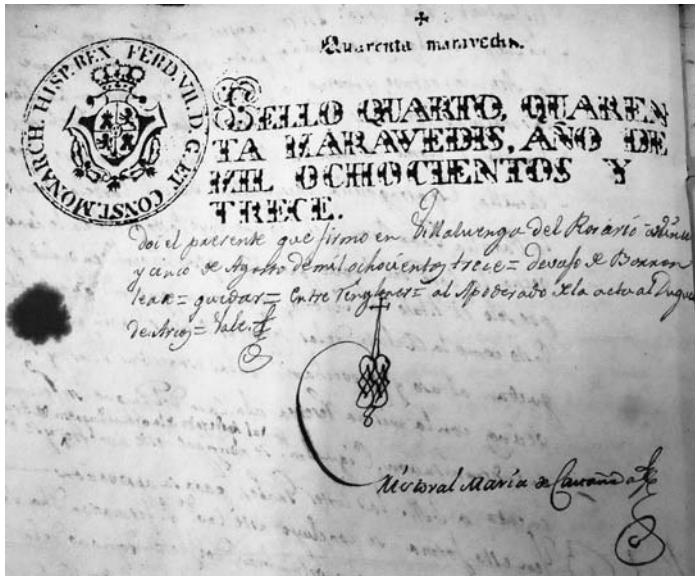 Quarenta maravedis.
HISP. REX FERD. VII. D. G. ET CONST. MONARCH.
SELLO QUARTO, QUAREN
TA MARAVEDIS, AÑO DE
MIL OCHOCIENTOS Y
TRECE.
doi el presente que firmo en Villaluenga del Rosario a
y cinco de Agosto de mil ochocientos trece = devajo de
= quedar = Entre renglones = al Apoderado de la actual Duque
de Arcos = Vale.
María de